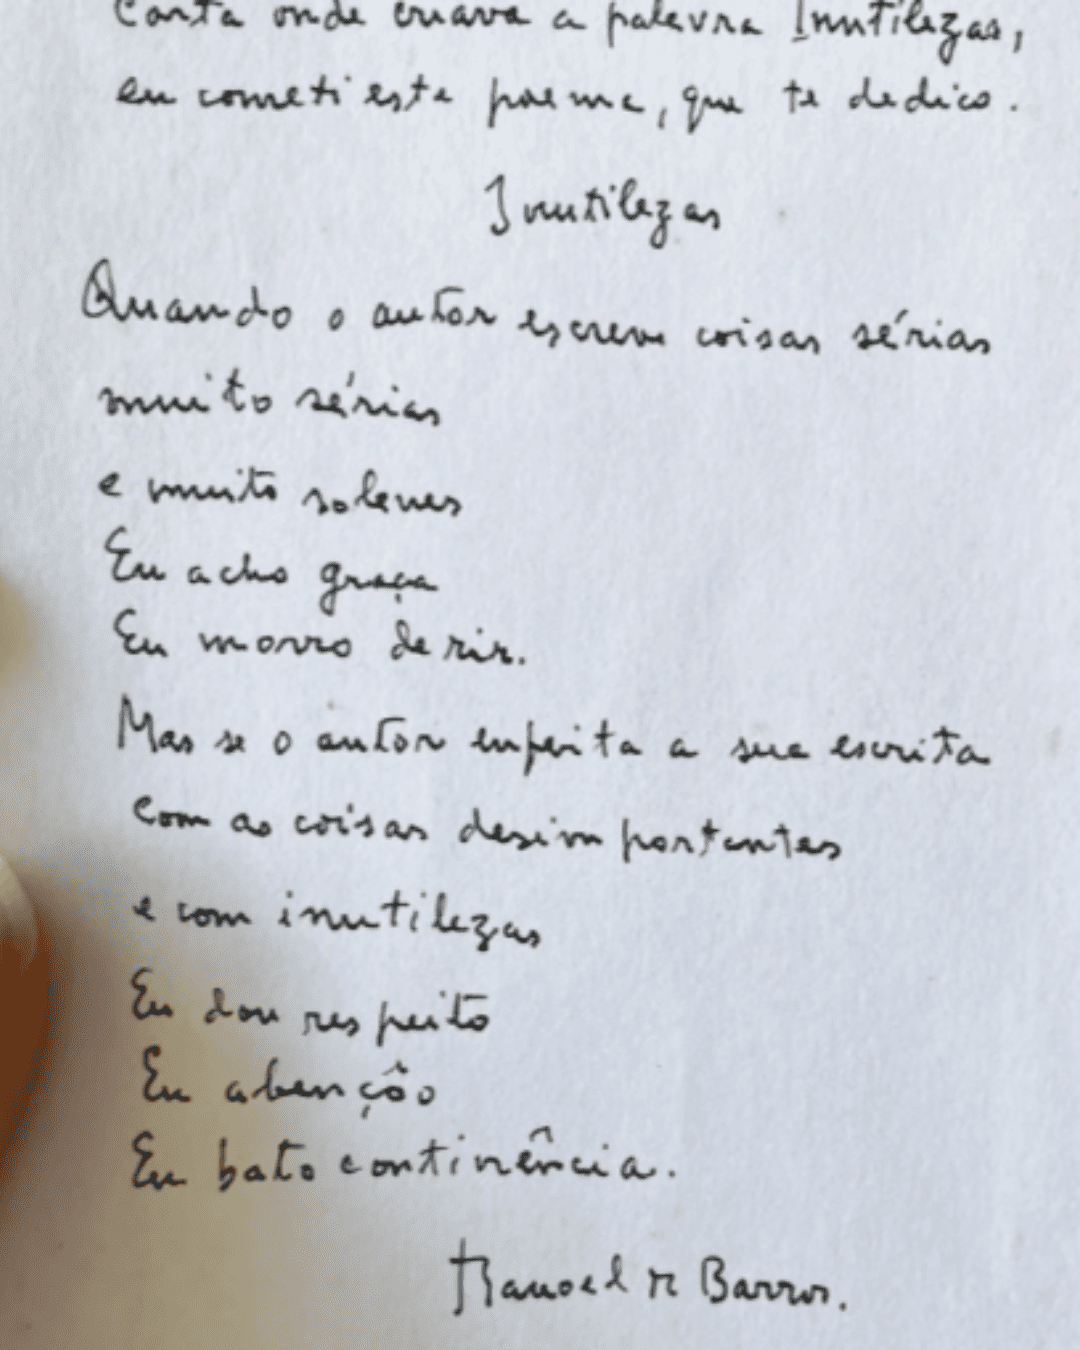 Carta onde criava a palavra Inutilezas,
eu cometi este poema, que te dedico.
Inutilezas
Quando o autor escreve coisas sérias
muito sérias
e muito solenes
Eu acho graça
Eu morro de rir.
Mas se o autor enfeita a sua escrita
com as coisas desimportantes
e com inutilezas
Eu dou respeito
Eu abençôo
Eu bato continência.
Manoel de Barros.